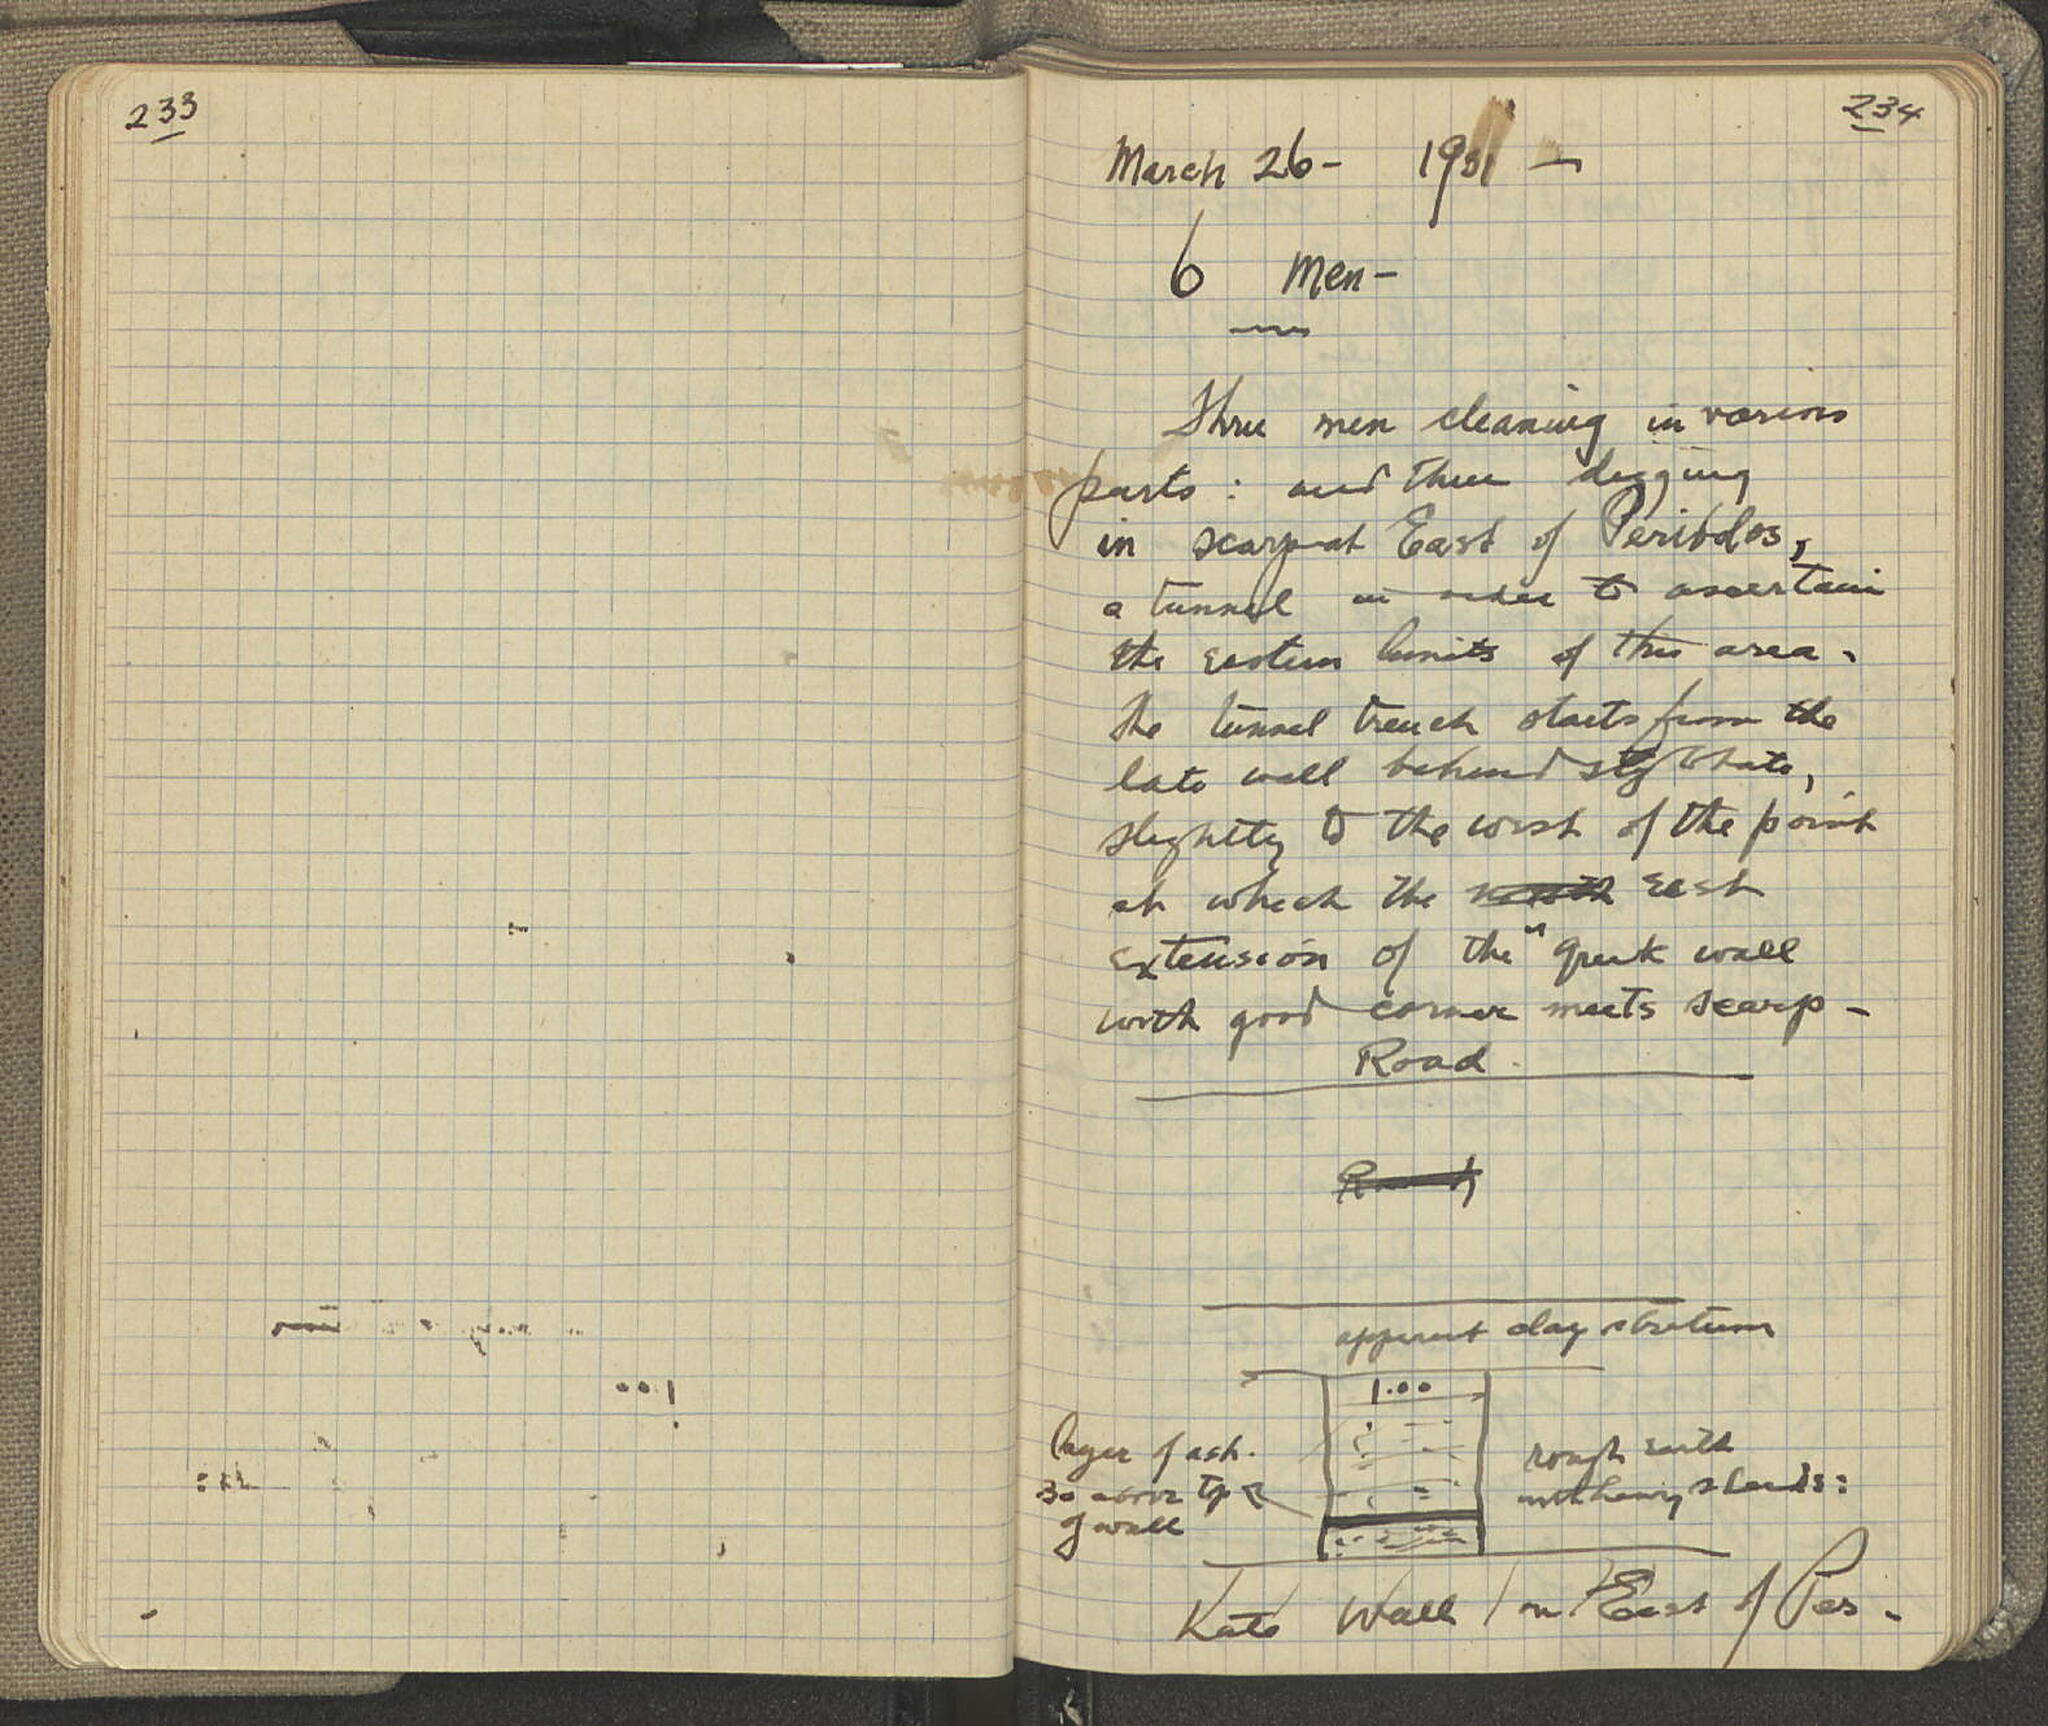 233
234
March 26 - 1931 -
6 Men -
Three men cleaning in various
parts : and three digging
in scarp at East of Peribolos,
a tunnel in order to ascertain
the eastern limits of this area.
The tunnel trench starts from the
late wall behind stylobate,
slightly to the west of the point
at which the north east
extension of the " Greek wall
with good corner meets scarp -
Road.
apparent clay stratum
1.00
layer of ash.
30 above top
of wall
rough earth
with heavy sherds:
Late Wall on East of Per.